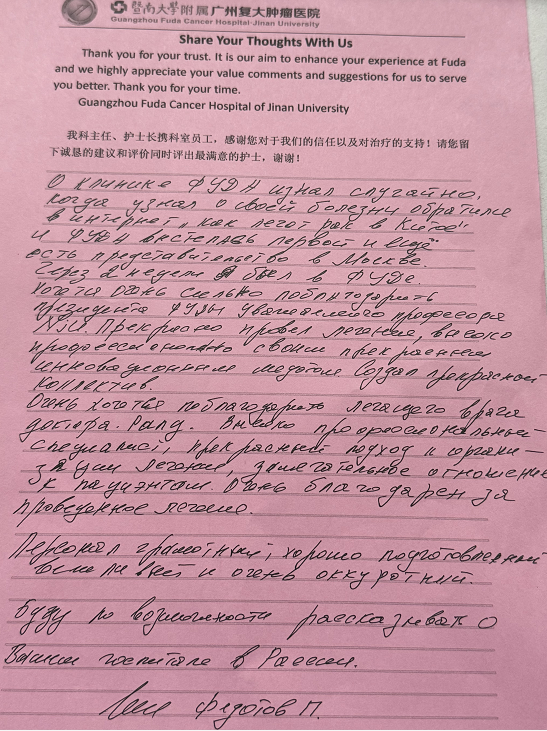 暨南大學附属广州复大肿瘤医院
Guangzhou Fuda Cancer Hospital·Jinan University
Share Your Thoughts With Us
Thank you for your trust. It is our aim to enhance your experience at Fuda
and we highly appreciate your value comments and suggestions for us to serve
you better. Thank you for your time.
Guangzhou Fuda Cancer Hospital of Jinan University
我科主任、护士长携科室员工，感谢您对于我们的信任以及对治疗的支持！请您留
下诚恳的建议和评价同时评出最满意的护士，谢谢！
О клинике ФУДА узнал случайно,
когда узнал о своей болезни обратился
в интернет „как лечат рак в Китае"
и ФУДА первой и ещё
есть представительство в Москве.
Через 2 недели я был в ФУДе.
Хочется очень сильно поблагодарить
президента ФУДЫ уважаемого профессора
NJU. Прекрасно провел лечение, высоко
профессионально своим прекрасным
инновационным методом. Создал прекрасный
коллектив.
Очень хочется поблагодарить лечащего врача
доктора. Высоко профессиональный
специалист, прекрасный подход к органи-
зации лечения, замечательное отношение
к пациентам. Очень благодарен за
проведенное лечение.
Персонал грамотный, хорошо подготовленный
и очень аккуратный.
Буду по возможности рассказывать о
Вашем госпитале в России.
Федотов П.